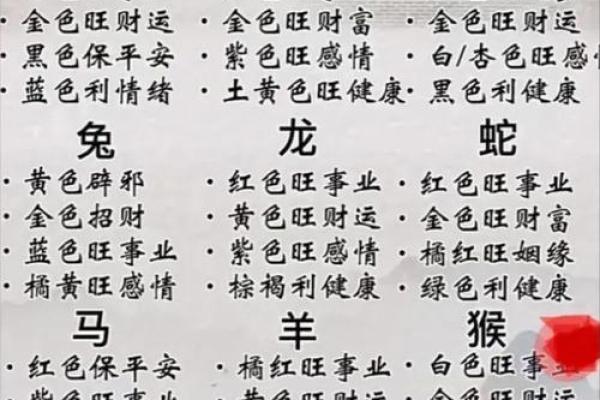 ·金色旺财运
·金色旺财富
·金色旺财运
·黑色保平安
·紫色旺感情
·白/杏色旺感情
·蓝色利情绪
·土黄色旺健康
·黑色利健康
兔
龙
蛇
·黄色辟邪
·红色旺事业
·红色旺事业
·金色招财
·黄色旺财运
·金色旺财富
·蓝色旺事业
·紫色旺感情
·橘红旺姻缘
·橘黄旺感情
·棕褐利健康
·绿色利健康
马
羊
猴
·红色保平安
·橘红旺事业
·白色旺事业